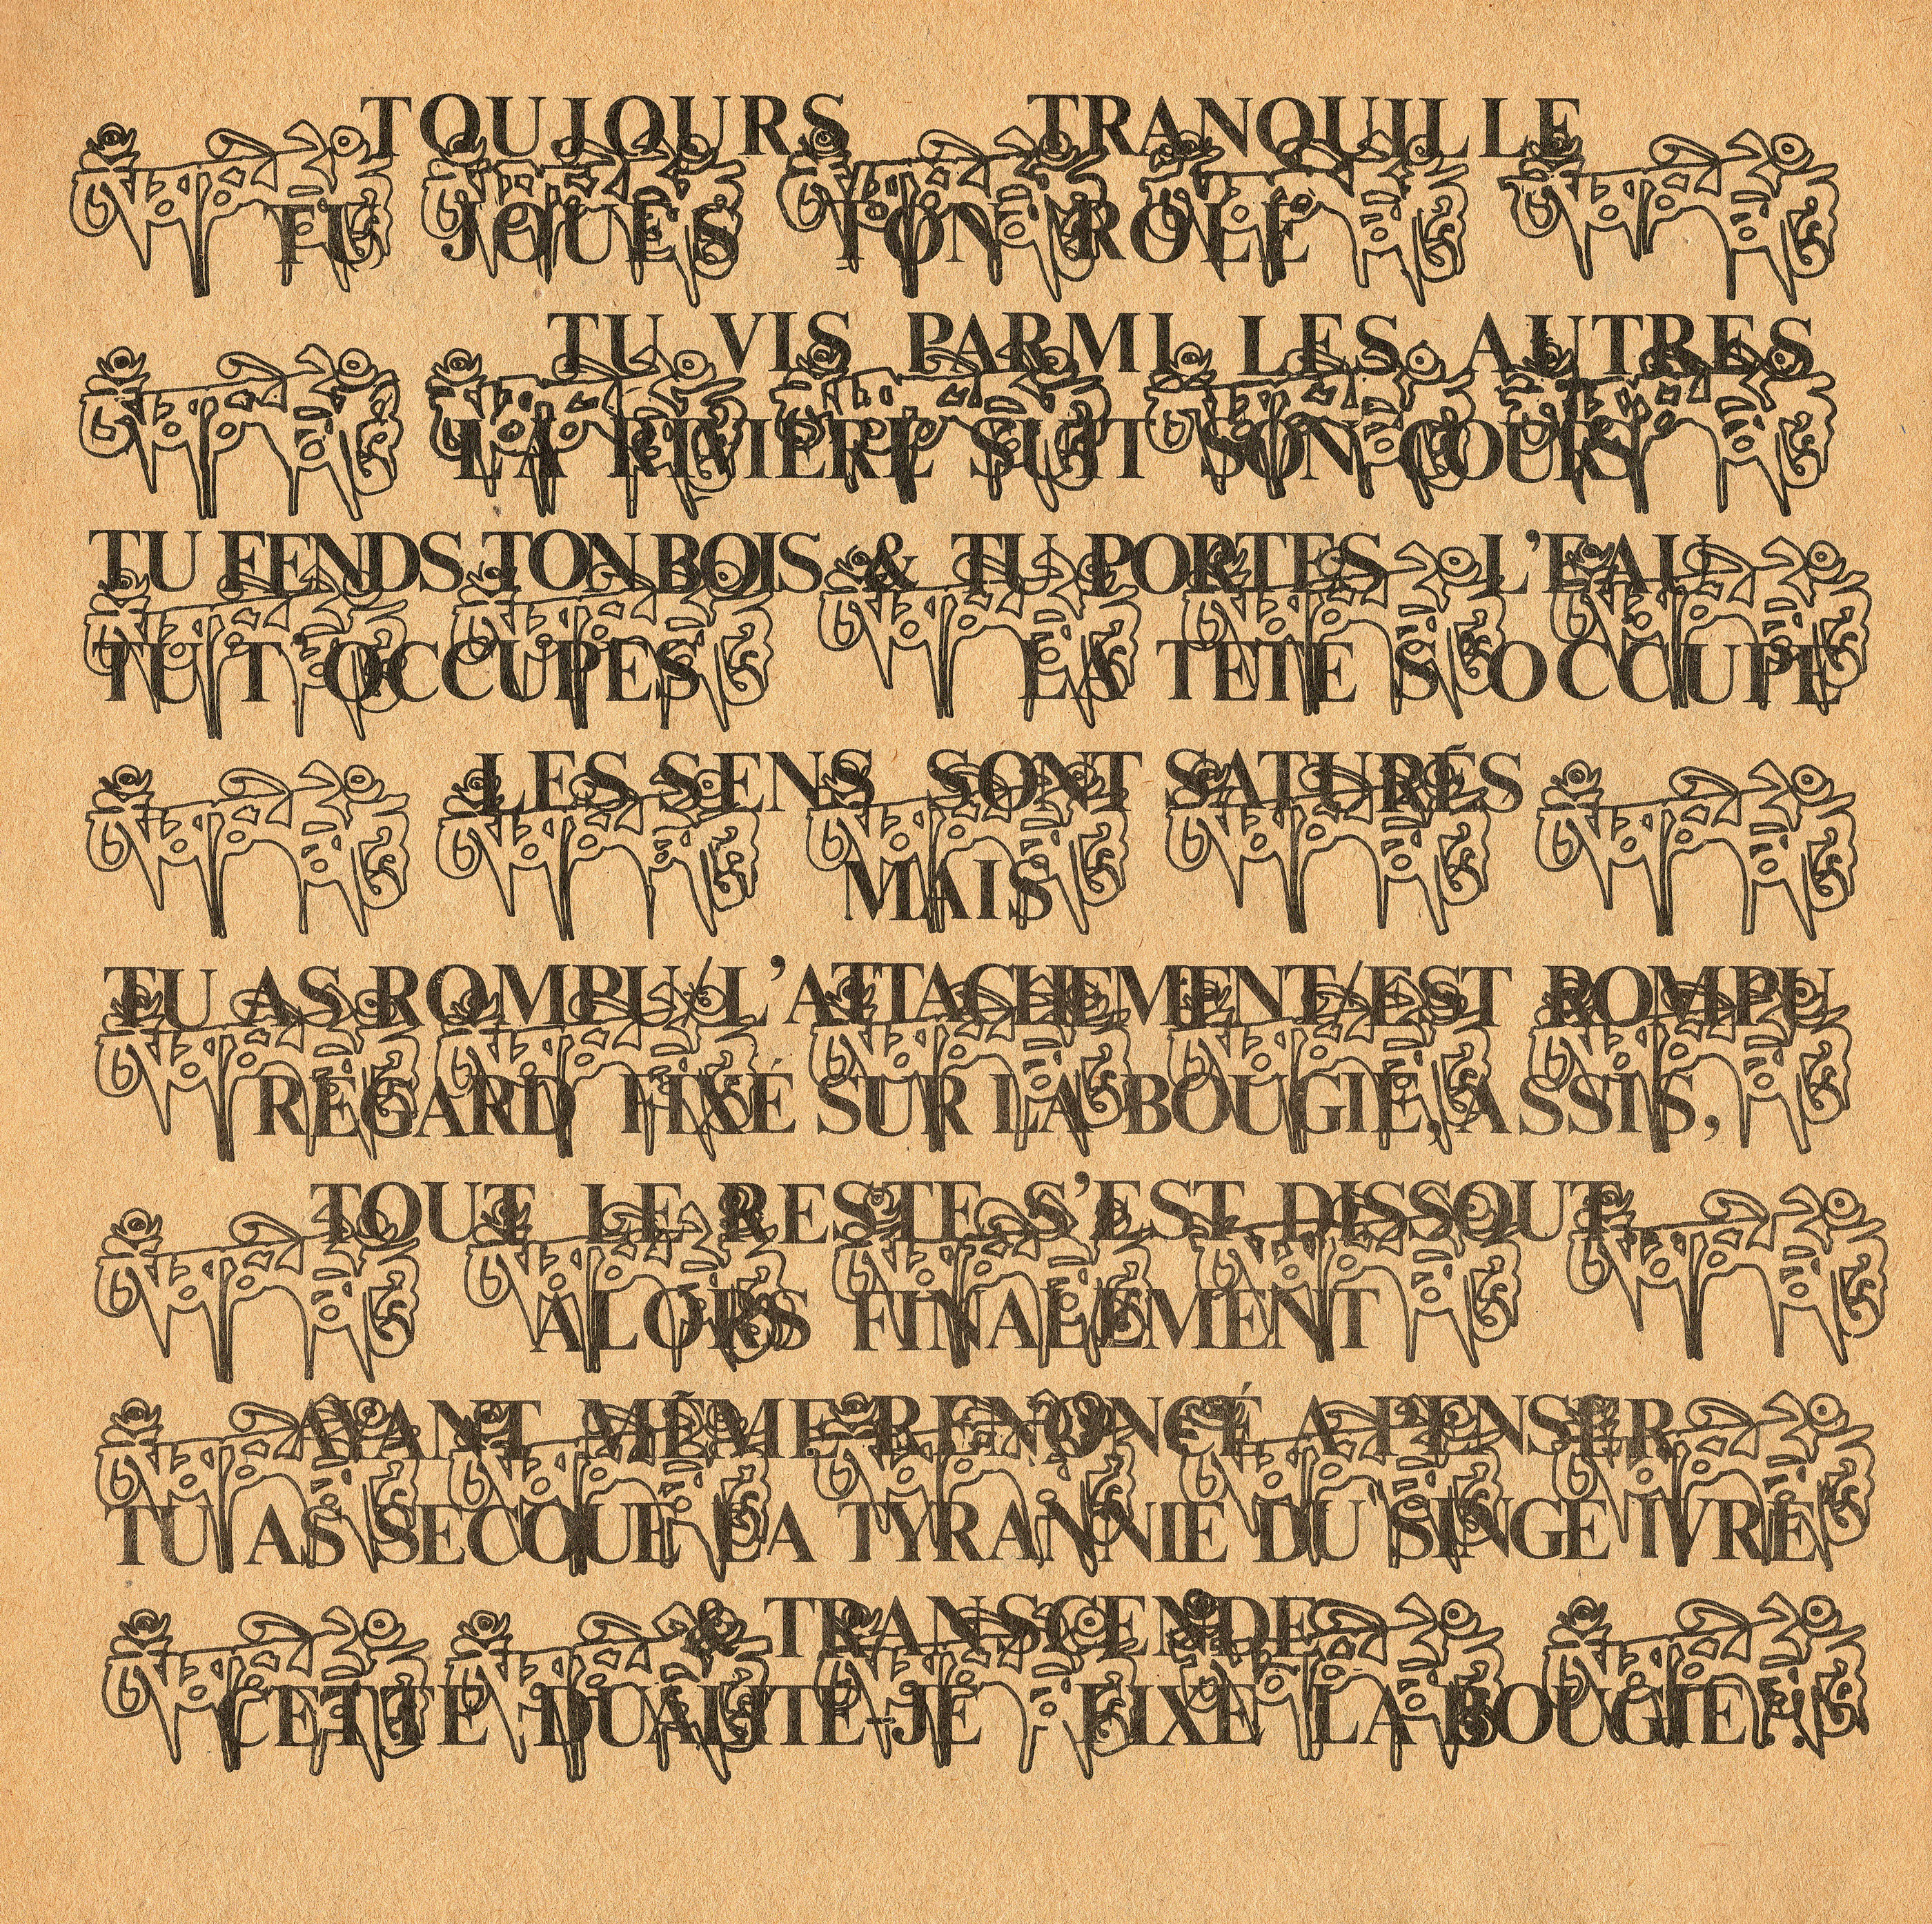 TOUJOURS TRANQUILLE
TU JOUES TON RÔLE
TU VIS PARMI LES AUTRES
LA RIVIERE SUIT SON COURS
TU FENDS TON BOIS & TU PORTES L'EAU
TU T'OCCUPES LA TETE S'OCCUPE
LES SENS SONT SATURÉS
MAIS
TU AS ROMPU/L'ATTACHEMENT/EST ROMPU
REGARD FIXÉ SUR LA BOUGIE, ASSIS,
TOUT LE RESTE S'EST DISSOUT
ALORS FINALEMENT
AYANT MÊME RENONCÉ A PENSER
TU AS SECOUE LA TYRANNIE DU SINGE IVRE
& TRANSCENDE
CETTE DUALITE-JE FIXE LA BOUGIE